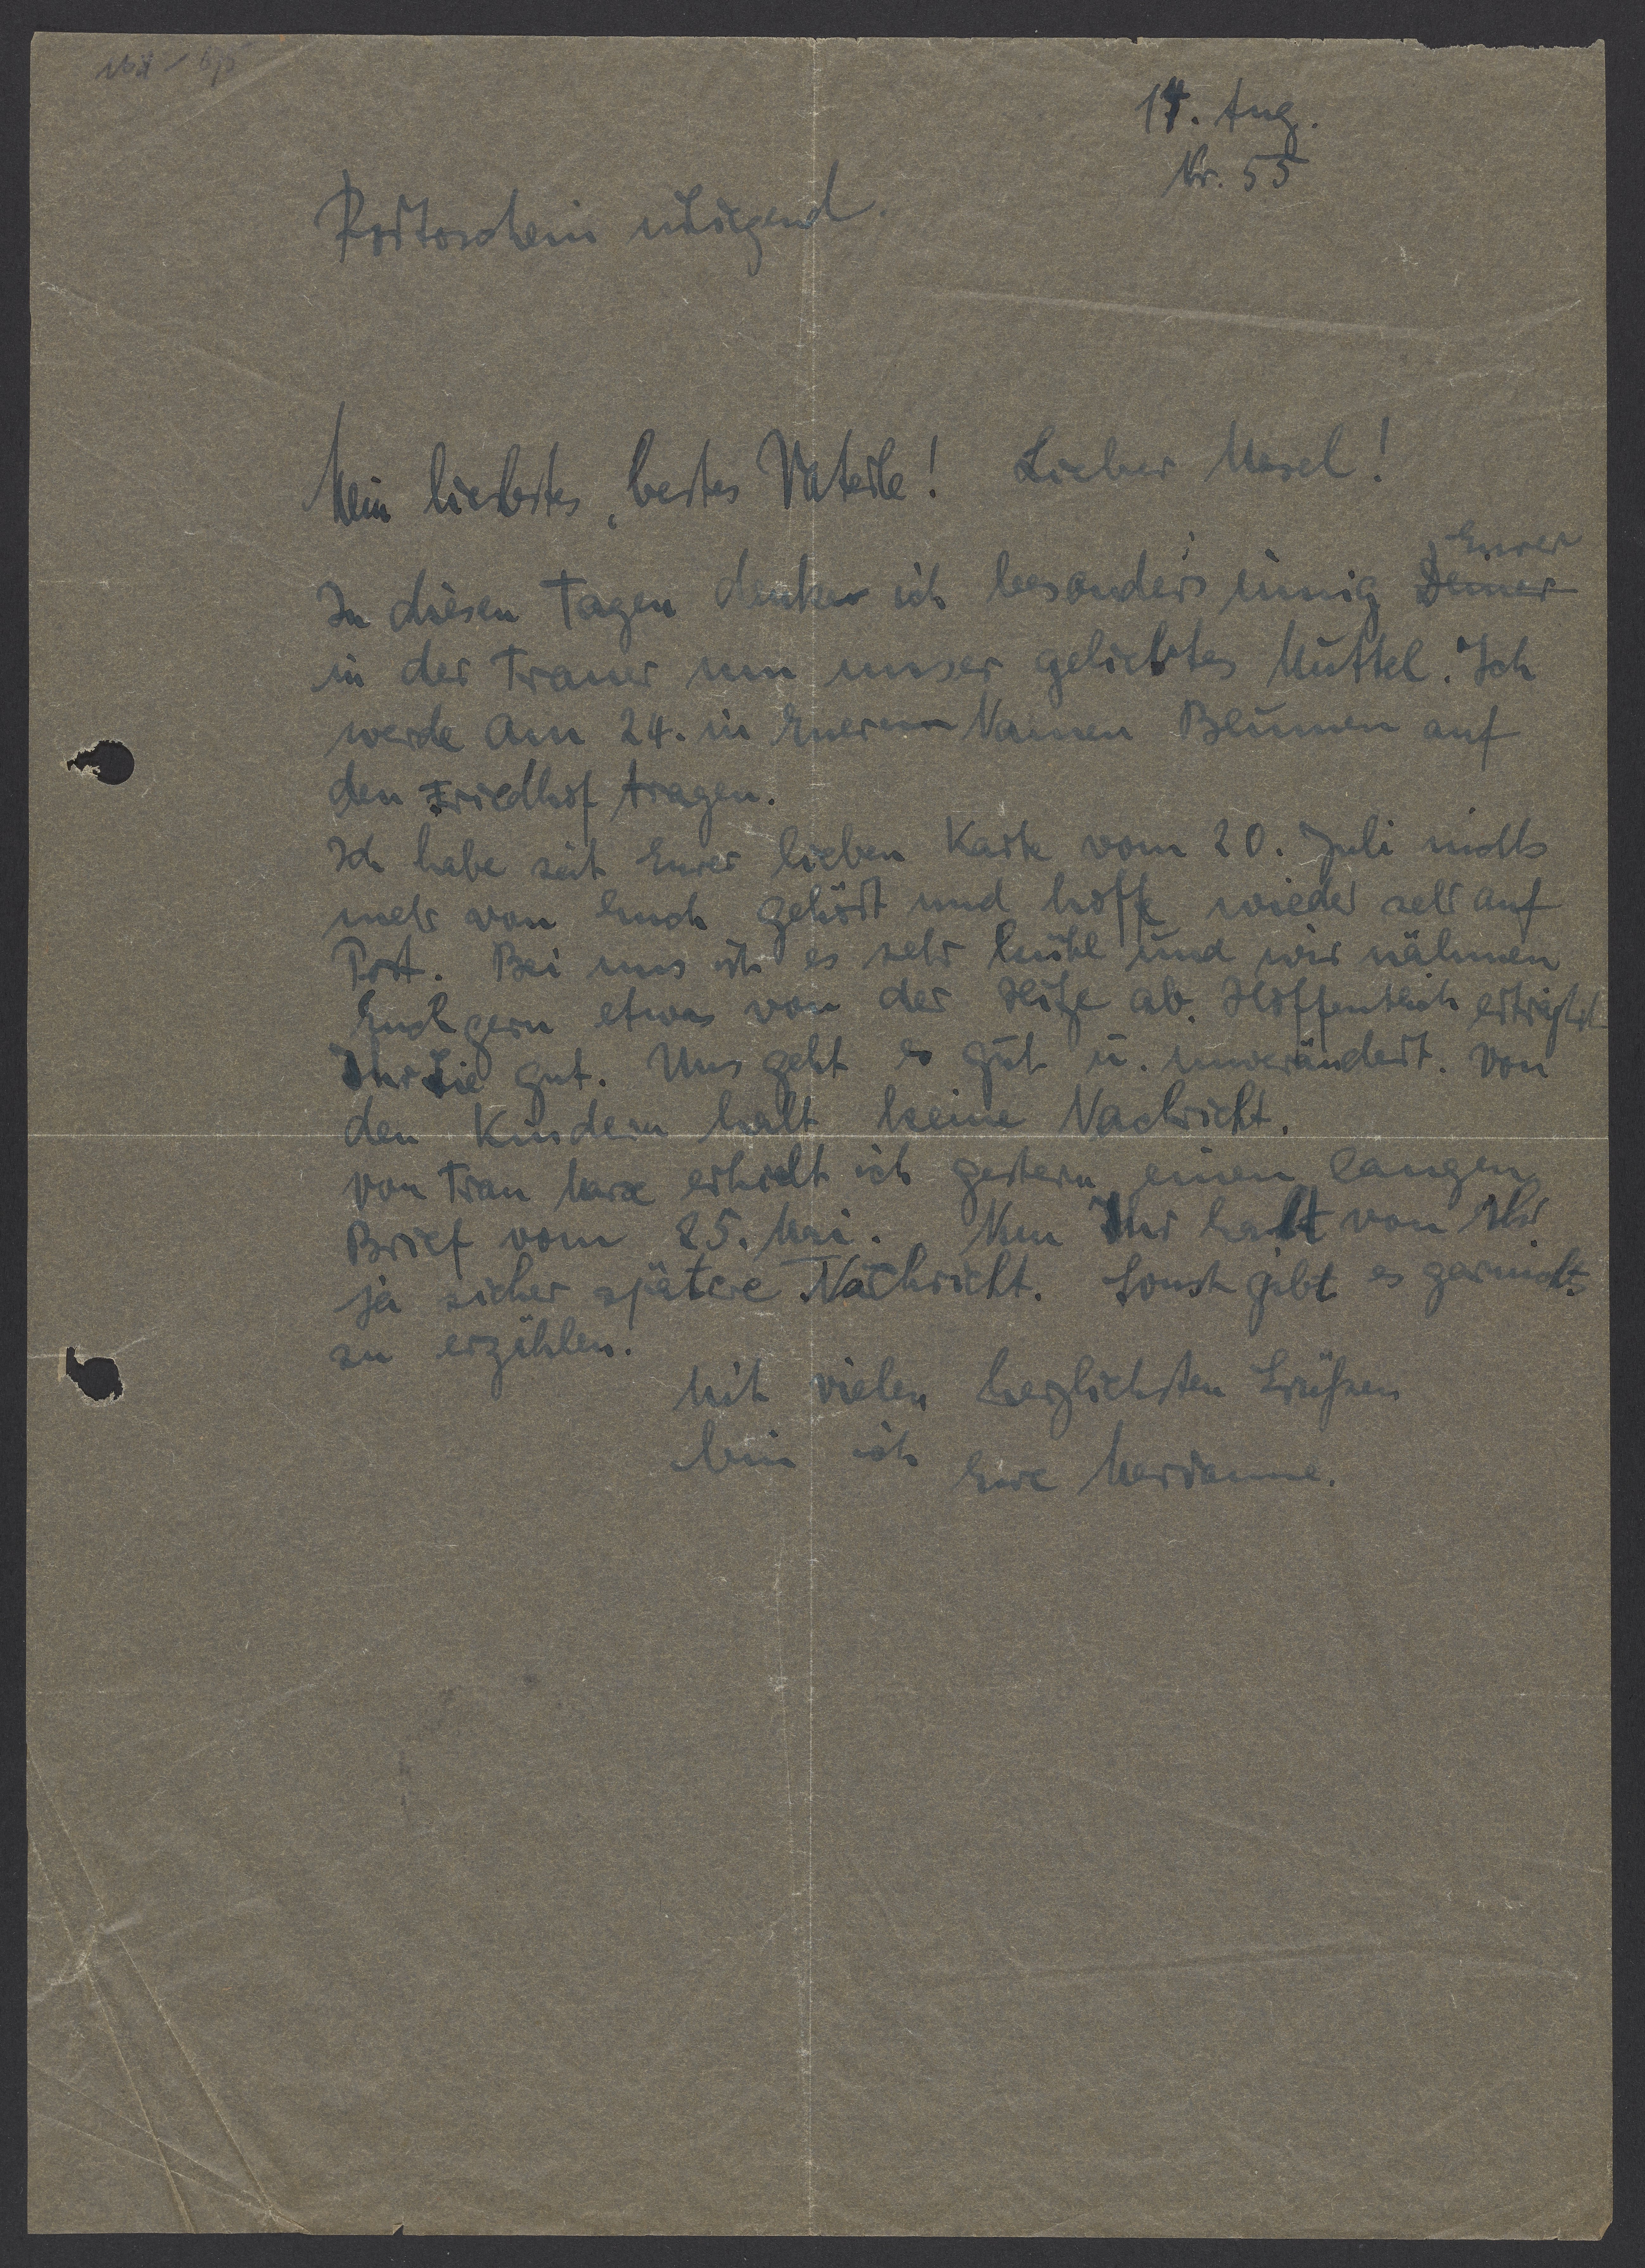 14. Aug.
Nr. 55
Mein liebstes, bestes Vaterle! Lieber Mosel!
In diesen Tagen denke ich besonders innig Deiner Eurer
in der Trauer um unser geliebtes Muttel. Ich
werde am 24. in Euerem Namen Blumen auf
den Friedhof tragen.
Ich habe seit Eurer lieben Karte vom 20. Juli nichts
mehr von Euch gehört und hoffe wieder sehr auf
Post. Bei uns ist es sehr kühl und wir nähmen
Euch gern etwas von der Hitze ab. Hoffentlich ertragt
Ihr sie gut. Uns geht es gut u. unverändert. Von
den Kindern halt keine Nachricht.
Von Frau Marx erhielt ich gestern einen langen
Brief vom 25. Mai. Nun Ihr habt von Ihr
ja sicher spätere Nachricht. Sonst gibt es garnichts
zu erzählen.
Mit vielen herzlichsten Grüßen
bin ich Eure Marianne.